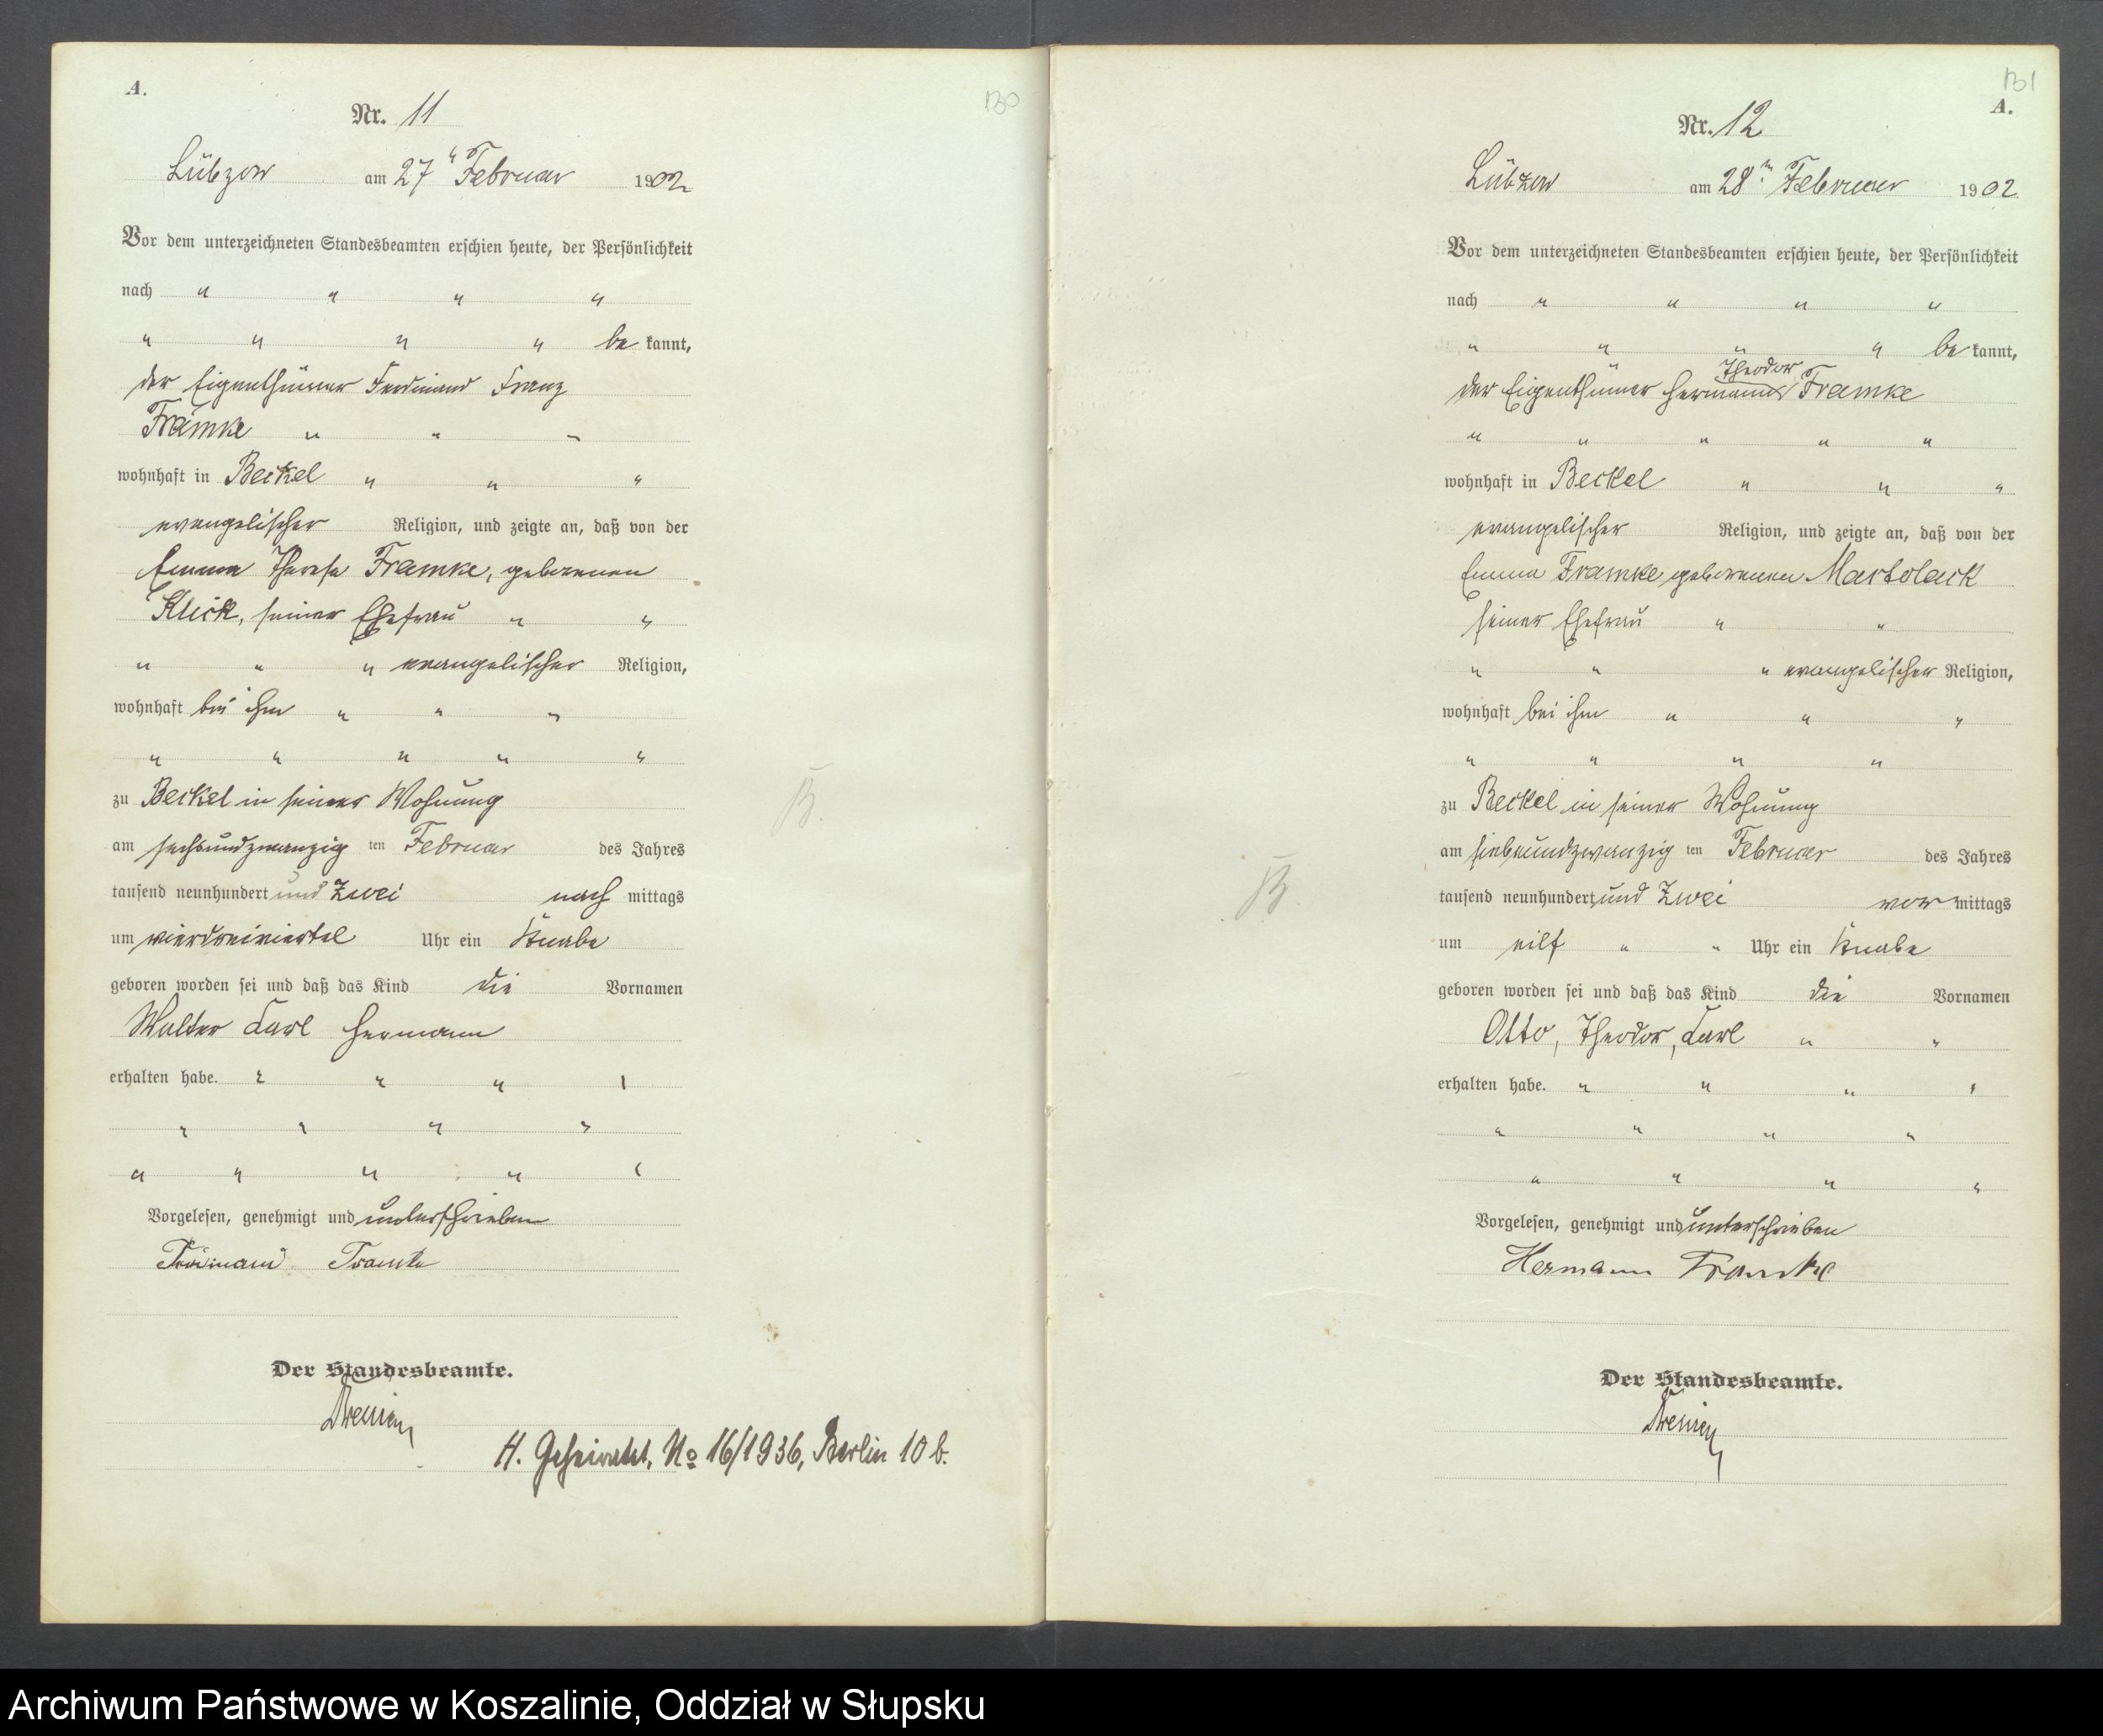 A.
130
Nr. 11
Lübzow am 27" Februar 1902
Vor dem unterzeichneten Standesbeamten erschien heute, der Persönlichkeit
nach " " " "
" " " " be kannt,
der Eigenthümer Ferdinand Franz
Framke " " "
wohnhaft in Beckel " " "
evangelischer Religion, und zeigte an, daß von der
Emma Therese Framke, geborenen
Klick, seiner Ehefrau " "
" " " evangelischer Religion,
wohnhaft bei ihm " " "
" " " " "
zu Beckel in seiner Wohnung
am sechsundzwanzig ten Februar des Jahres
tausend neunhundert und zwei nach mittags
um vierdreiviertel Uhr ein Knabe
geboren worden sei und daß das Kind die Vornamen
Walter Carl Hermann
erhalten habe. " " " "
" " " "
" " " " "
Vorgelesen, genehmigt und unterschrieben
Ferdinand Framke
Der Standesbeamte.
H. Geheiratet. No 16/1936, Berlin 10 b.
B.
131
A.
Nr. 12
Lübzow am 28ten Februar 1902
Vor dem unterzeichneten Standesbeamten erschien heute, der Persönlichkeit
nach " " " "
" " " " be kannt,
Theodor
der Eigenthümer Hermann Framke
" " " " "
wohnhaft in Beckel " " "
evangelischer Religion, und zeigte an, daß von der
Emma Framke geborenen Martolack
seiner Ehefrau " "
" " " evangelischer Religion,
wohnhaft bei ihm " " "
" " " "
zu Beckel in seiner Wohnung
am siebenundzwanzig ten Februar des Jahres
tausend neunhundert und zwei vor mittags
um eilf " " Uhr ein Knabe
geboren worden sei und daß das Kind die Vornamen
Otto, Theodor, Carl " "
erhalten habe. " " " "
" " " "
" " " "
Vorgelesen, genehmigt und unterschrieben
Hermann Framke
Der Standesbeamte.
B
Archiwum Państwowe w Koszalinie, Oddział w Słupsku